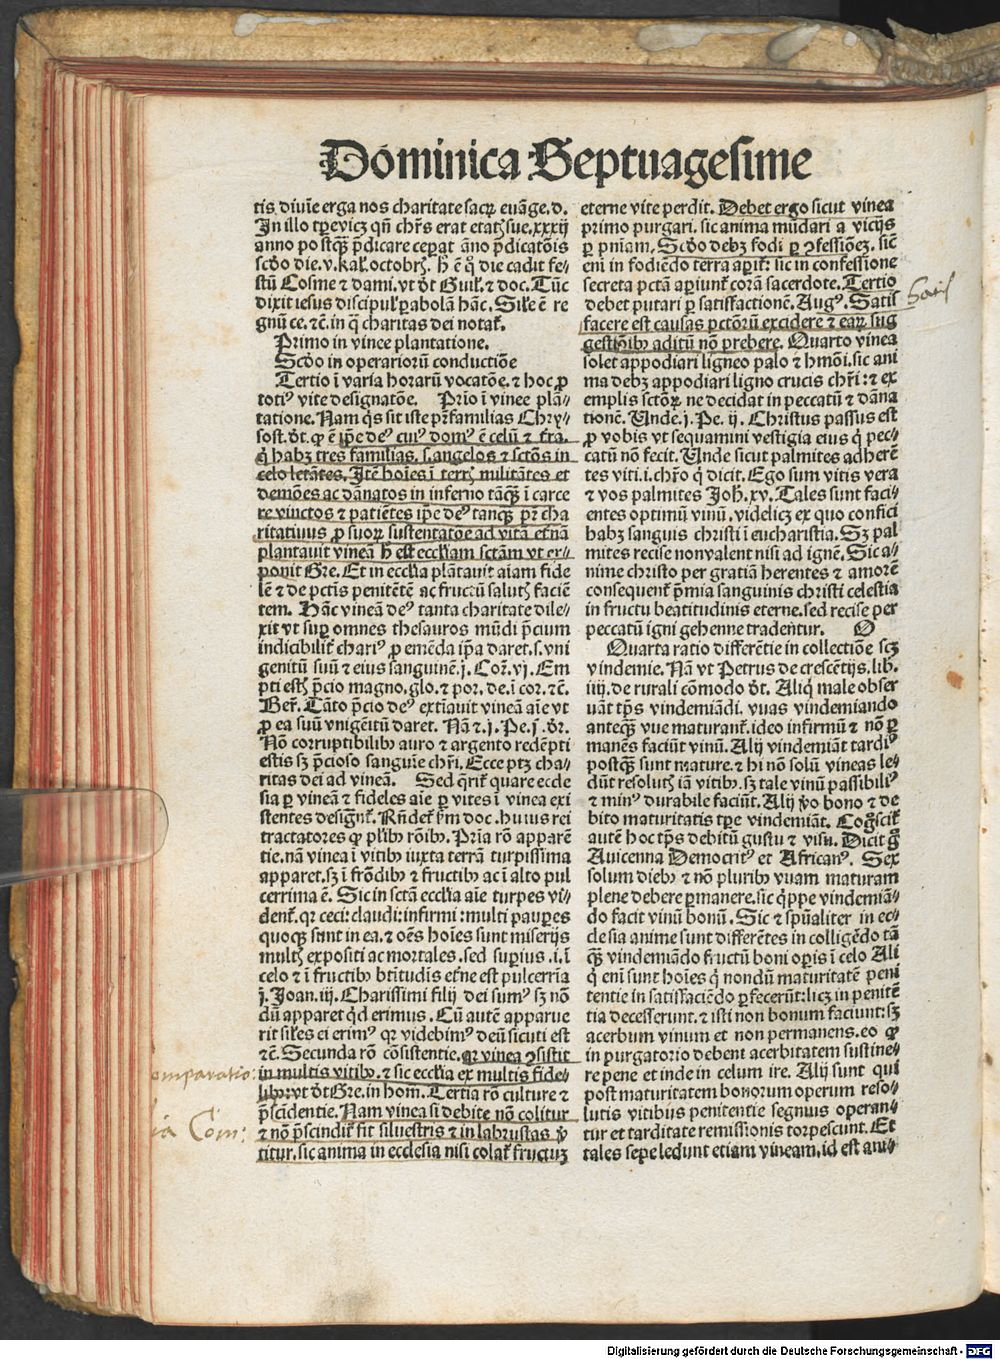 Dominica Septuagesime
tis diuīe erga nos charitate sacꝝ euāge. d.
In illo tꝑe vicꝫ qñ chr̄s erat etatꝭ sue. xxxij
anno postqꝫ p̄dicare ceꝑat āno p̄dicatōis
scd̓o die. v. kal̓. octobrꝭ. h̄ ē q̓ die cadit fe⸗
stū Cosme ⁊ dami. vt dt̓ Guil̓. ⁊ doc. Tūc
dixit iesus discipul̓ ꝑabolā hāc. Sil̓e ē re
gnū ce. ⁊c̄. in q̓ charitas dei notat̓.
Primo in vinee plantatione.
Scd̓o in operariorū conductiōe
Tertio ī varia horarū vocatōe. ⁊ hoc ꝓ
totiꝰ vite designatōe. Prīo ī vinee plā⸗
tatione. Nam q̓s sit iste pr̄familias Chry⸗
sost. dt̓. ꝙ ē ip̄e deꝰ cuiꝰ domꝰ ē celū ⁊ fra.
q̓ habꝫ tres familias. s. angelos ⁊ sctōs in
celo letātes. Itē hoīes ī terrꝭ militātes et
demōes ac dānatos in inferno tāqꝫ ī carce
re vinctos ⁊ patiētes ip̄e deꝰ tanqꝫ pr̄ cha
ritatiuus ꝓ suoꝝ sustentatōe ad vitā et̓nā
plantauit vineā h̄ est eccl̓iam sctām vt ex⸗
ponit Gre. Et in eccl̓ia plātauit aīam fide
lē ⁊ de pctīs penitētē ac fructū salutꝭ faciē
tem. Hāc vineā deꝰ tanta charitate dile⸗
xit vt suꝑ omnes thesauros mūdi p̄cium
indicibilit̓ chariꝰ ꝓ emēda ip̄a daret. s. vni
genitū suū ⁊ eius sanguinē. j. Cor̄. vj. Em
pti estꝭ p̄cio magno. glo. ⁊ por. de. ī cor. ⁊c̄.
Ber̄. Tāto p̄cio deꝰ extīauit vineā aīe vt
ꝓ ea suū vnigēitū daret. Nā ⁊. j. Pe. j. dr̄.
Nō corruptibilibꝰ auro ⁊ argento redēpti
estis sꝫ p̄cioso sanguīe chr̄i. Ecce ptꝫ cha⸗
ritas dei ad vineā. Sed q̄rit̓ quare eccle
sia ꝑ vineā ⁊ fideles aīe ꝑ vites ī vinea exi
stentes designēt̓. Rn̄det̓ ẜm doc. huius rei
tractatores ꝙ pl̓ibꝰ rōibꝰ. Prīa rō apparē
tie. nā vinea ī vitibꝰ iuxta terrā turpissima
apparet. sꝫ ī frōdibꝰ ⁊ fructibꝰ ac ī alto pul
cerrima ē. Sic in sctā eccl̓ia aīe turpes vi⸗
dent̓. qꝛ ceci: claudi: infirmi: multi pauꝑes
quoqꝫ sunt in ea. ⁊ oēs hoīes sunt miserijs
multꝭ expositi ac mortales. sed suꝑius. i. ī
celo ⁊ ī fructibꝰ btītudīs et̓ne est pulcerrīa
j. Joan. iij. Charissimi filij dei sumꝰ sꝫ nō
dū apparet q̓d erimus. Cū autē apparue
rit sil̓es ei erimꝰ qꝛ videbimꝰ deū sicuti est
⁊c̄. Secunda rō cōsistentie. qꝛ vinea ꝯsistit
in multis vitibꝰ. ⁊ sic eccl̓ia ex multis fide⸗
libꝰ: vt dt̓ Gre. in hom̄. Tertia rō culture ⁊
p̄scidentie. Nam vinea si debite nō colitur
⁊ nō p̄scindit̓ fit siluestris ⁊ in labrustas v̓
titur. sic anima in ecclesia nisi colat̓ fructuꝫ
eterne vite perdit. Debet ergo sicut vinea
primo purgari. sic anima mūdari a vicijs
ꝑ pn̄iam. Scd̓o debꝫ fodi ꝑ ꝯfessiōeꝫ. sic̄
eni̅ in fodiēdo terra aꝑit̓: sic in confessione
secreta pctā aꝑiunt̓ corā sacerdote. Tertio
debet putari ꝑ satisfactionē. Augꝰ. Satis
facere est causas pctōrū excidere ⁊ eaꝝ sug
gestiōibꝰ aditū nō prebere. Quarto vinea
solet appodiari ligneo palo ⁊ hmōi. sic ani
ma debꝫ appodiari ligno crucis chr̄i: ⁊ ex
emplis sctōꝝ ne decidat in peccatū ⁊ dāna
tionē. Unde. j. Pe. ij. Christus passus est
ꝓ vobis vt sequamini vestigia eius q̓ pec⸗
catū nō fecit. Unde sicut palmites adherē
tes viti. i. chr̄o q̓ dicit. Ego sum vitis vera
⁊ vos palmites Joh̄. xv. Tales sunt faci⸗
entes optimū vinū. videlicꝫ ex quo confici
habꝫ sanguis christi ī eucharistia. Sꝫ pal
mites recise non valent nisi ad ignē. Sic a⸗
nime christo per gratiā herentes ⁊ amorē
consequent̓ p̄mia sanguinis christi celestia
in fructu beatitudinis eterne. sed recise per
peccatū igni gehenne tradentur. O
Quarta ratio differētie in collectiōe scꝫ
vindemie. Nā vt Petrus de crescētijs. lib.
iiij. de rurali cōmodo dt̓. Aliq̓ male obser
uāt tp̄s vindemiādi. vuas vindemiando
anteqꝫ vue maturant̓. ideo infirmū ⁊ nō ꝑ
manēs faciūt vinū. Alij vindemiāt tardiꝰ
postqꝫ sunt mature. ⁊ hi nō solū vineas le⸗
dūt resolutꝭ iā vitibꝰ. sꝫ tale vinū passibiliꝰ
⁊ minꝰ durabile faciūt. Alij ꝟo bono ⁊ de
bito maturitatis tp̄e vindemiāt. Cogͦscit̓
autē hoc tp̄s debitū gustu ⁊ visu. Dicit gͦ
Auicenna Democritꝰ et Africanꝰ. Sex
solum diebꝰ ⁊ nō pluribꝰ vuam maturam
plene debere ꝑmanere. sic q̓ppe vindemiā⸗
do facit vinū bonū. Sic ⁊ sp̄ualiter in ec⸗
clesia anime sunt differētes in colligēdo tā
qꝫ vindemiādo fructū boni oꝑis ī celo Ali
q̓ eni̅ sunt hoīes q̓ nondū maturitatē peni
tentie in satisfaciēdo ꝑfecerūt: licꝫ in penitē
tia decesserunt. ⁊ isti non bonum faciunt: sꝫ
acerbum vinum et non permanens. eo ꝙ
in purgatorio debent acerbitatem sustine⸗
re pene et inde in celum ire. Alij sunt qui
post maturitatem bonorum operum reso⸗
lutis vitibus penitentie segnius operan⸗
tur et tarditate remissionis torpescunt. Et
tales sepe ledunt etiam vineam. id est ani⸗
Satis
omparatio:
ia Com:
Digitalisierung gefördert durch die Deutsche Forschungsgemeinschaft - DFG